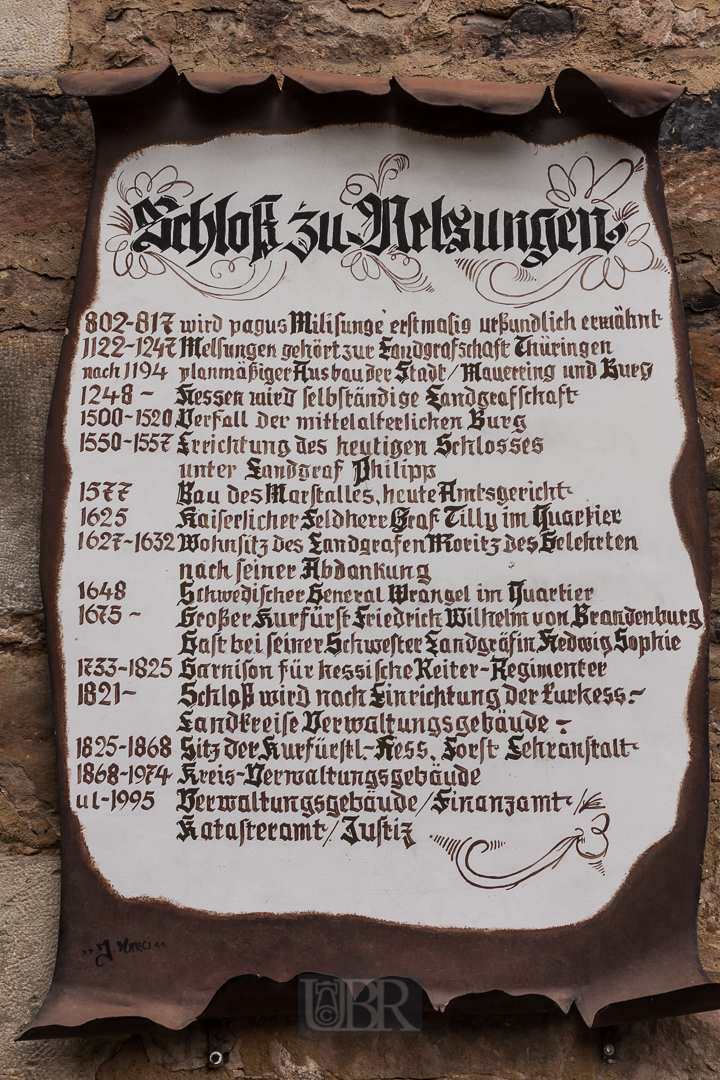 Schloß zu Melsungen
802-817 wird pagus Milisunge erstmasig urkundlich erwähnt
1122-1247 Melsungen gehört zur Landgrafschaft Thüringen
nach 1194 planmäßiger Ausbau der Stadt/Mauerring und Burg
1248 - Hessen wird selbständige Landgrafschaft
1500-1520 Verfall der mittelalterlichen Burg
1550-1557 Errichtung des heutigen Schlosses
unter Landgraf Philipp
1577 Bau des Marstalles, heute Amtsgericht
1625 Kaiserlicher Feldherr Graf Tilly im Quartier
1627-1632 Wohnsitz des Landgrafen Moritz des Gelehrten
nach seiner Abdankung
1648 Schwedischer General Wrangel im Quartier
1675 - Großer Kurfürst Friedrich Wilhelm von Brandenburg
Gast bei seiner Schwester Landgräfin Hedwig Sophie
1733-1825 Garnison für hessische Reiter-Regimenter
1821- Schloß wird nach Einrichtung der kurhess.-
Landkreise Verwaltungsgebäude -
1825-1868 Sitz der Kurfürstl.-Hess. Forst Lehranstalt
1868-1974 Kreis-Verwaltungsgebäude
ul-1995 Verwaltungsgebäude/Finanzamt/
Katasteramt/Justiz
UBR